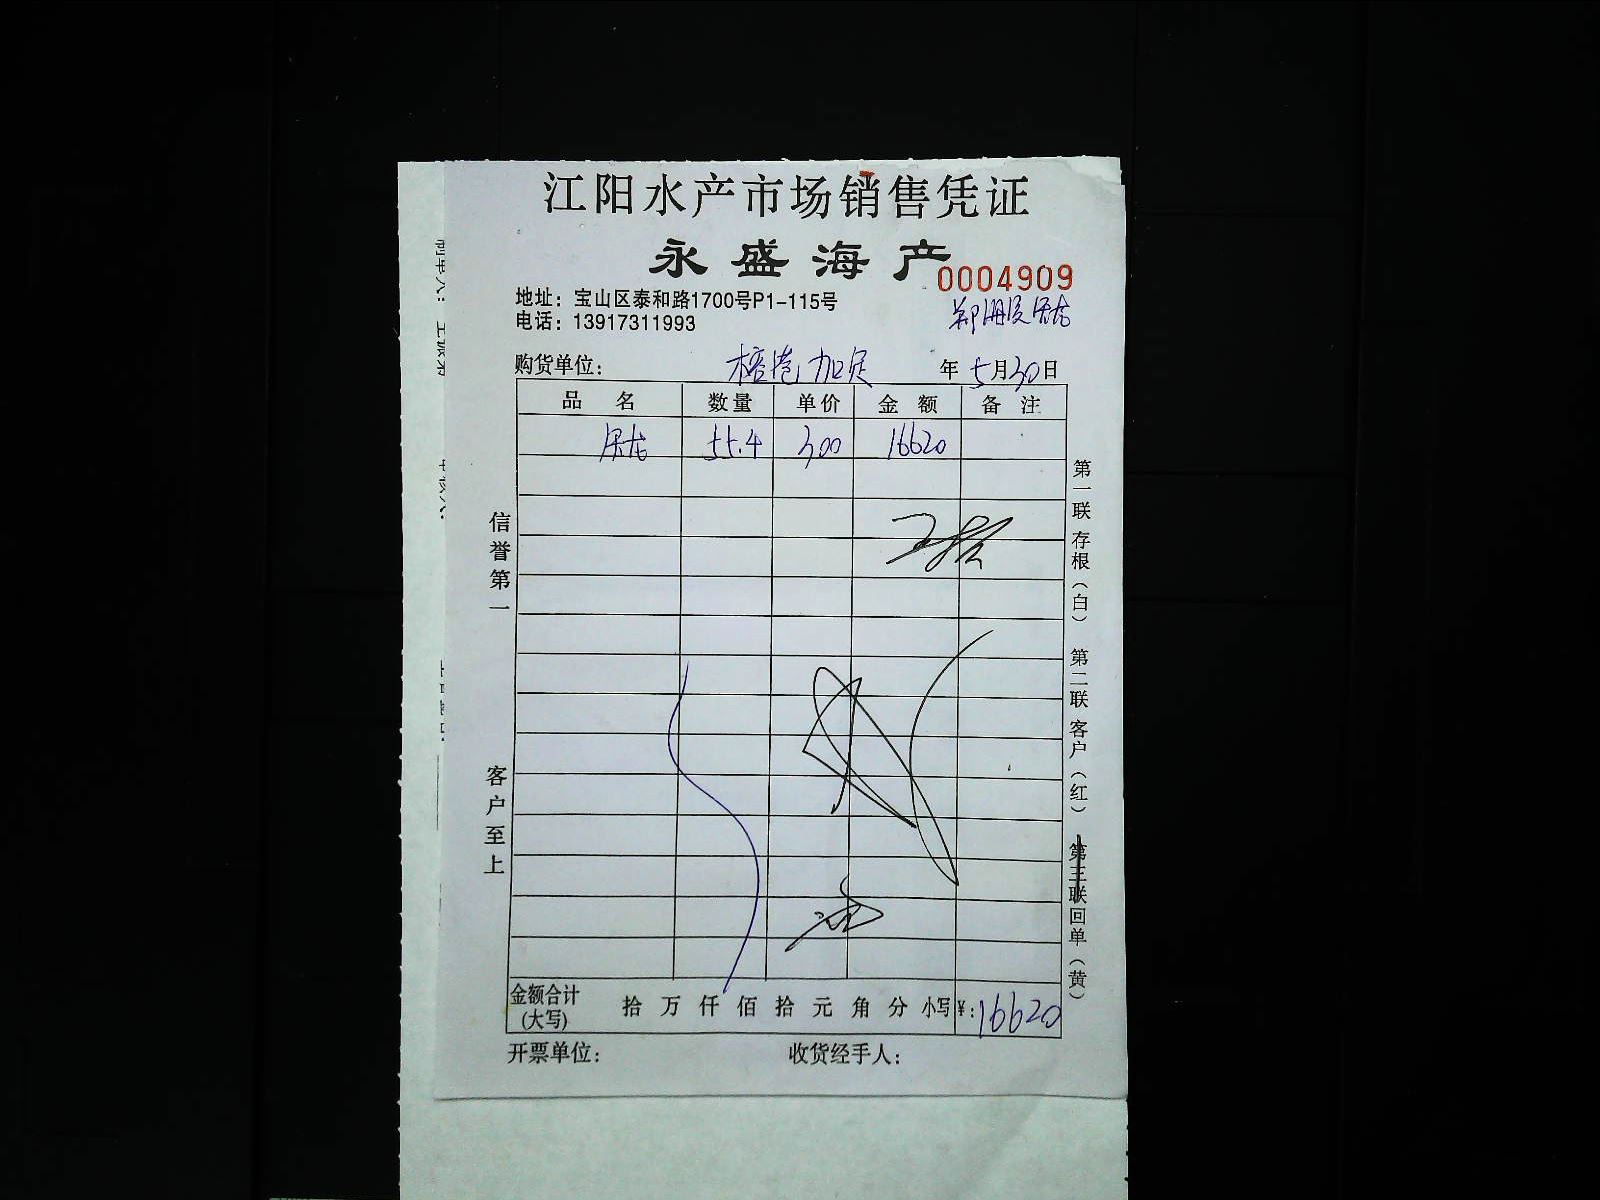 江阳水产市场销售凭证
永盛海产
0004909
地址：宝山区泰和路1700号P1-115号
电话：13917311993
购货单位： 榕港加定 年5月30日
品名 数量 单价 金额 备注
55.4 300 16620
信誉第一
客户至上
第一联存根（白） 第二联客户（红） 第三联回单（黄）
金额合计(大写) 拾万仟佰拾元角分 小写¥：16620
开票单位： 收货经手人：